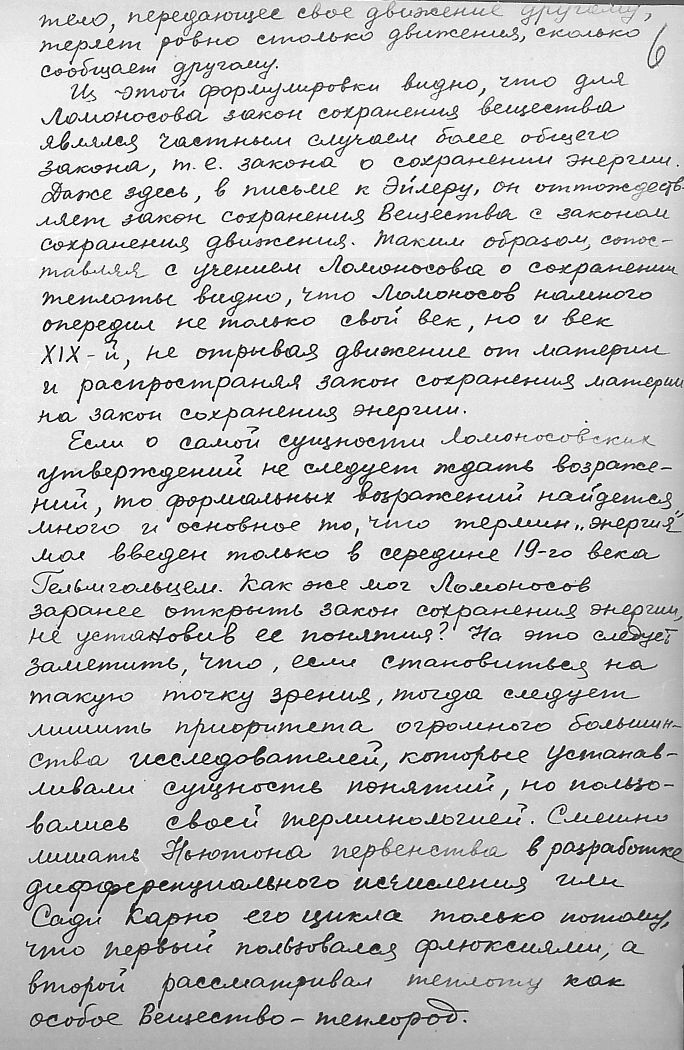 тело, передающее свое движение другому,
теряет ровно столько движения, сколько
сообщает другому.
6
Из этой формулировки видно, что для
Ломоносова закон сохранения вещества
являлся частным случаем более общего
закона, т.е. закона о сохранении энергии.
Даже здесь, в письме к Эйлеру, он оттождеств-
ляет закон сохранения Вещества с законом
сохранения движения. Таким образом, сопос-
тавляя с учением Ломоносова о сохранении
теплоты видно, что Ломоносов намного
опередил не только свой век, но и век
XIX-й, не отрывая движение от материи
и распространяя закон сохранения материи
на закон сохранения энергии.
Если о самой сущности Ломоносовских
утверждений не следует ждать возраже-
ний, то формальных возражений найдется
много и основное то, что термин „энергия"
мол введен только в середине 19-го века
Гельмгольцем. Как же мог Ломоносов
заранее открыть закон сохранения энергии,
не установив ее понятия? На это следует
заметить, что, если становиться на
такую точку зрения, тогда следует
лишить приоритета огромного большин-
ства исследователей, которые устанав-
ливали сущность понятий, но пользо-
вались своей терминологией. Смешно
лишать Ньютона первенства в разработке
дифференциального исчисления или
Сади Карно его цикла только потому,
что первый пользовался флюксиями, а
второй рассматривал теплоту как
особое Вещество - теплород.